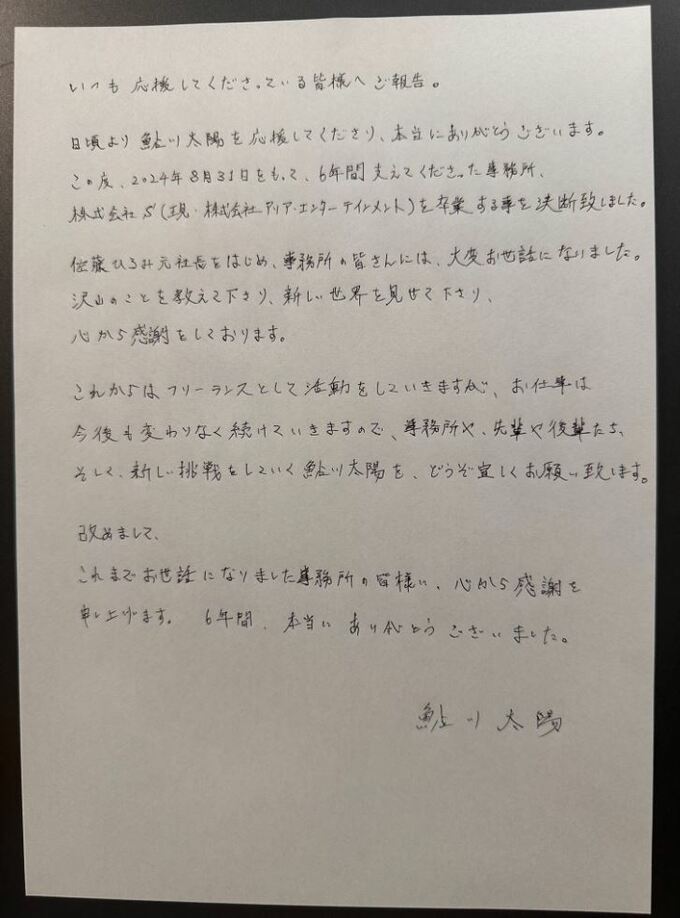 いつも応援してくださっている皆様へご報告。
日頃より鮎川太陽を応援してくださり、本当にありがとうございます。
この度、2024年8月31日をもって、6年間支えてくださった事務所、
株式会社S(現・株式会社アリア・エンターテインメント)を卒業する事を決断致しました。
佐藤ひろみ元社長をはじめ、事務所の皆さんには、大変お世話になりました。
沢山のことを教えて下さり、新しい世界を見せて下さり、
心から感謝をしております。
これからはフリーランスとして活動をしていきますが、お仕事は
今後も変わりなく続けていきますので、事務所や、先輩や後輩たち、
そして、新しい挑戦をしていく鮎川太陽を、どうぞ宜しくお願い致します。
改めまして、
これまでお世話になりました事務所の皆様に、心から感謝を
申し上げます。 6年間、本当にありがとうございました。
鮎川太陽